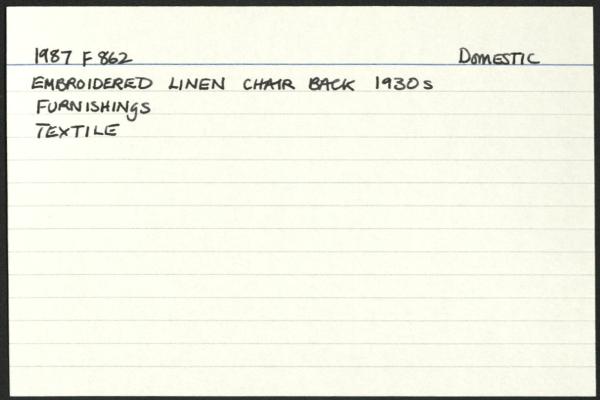 1987 F 862 DOMESTIC
EMBROIDERED LINEN CHAIR BACK 1930s
FURNISHINGS
TEXTILE